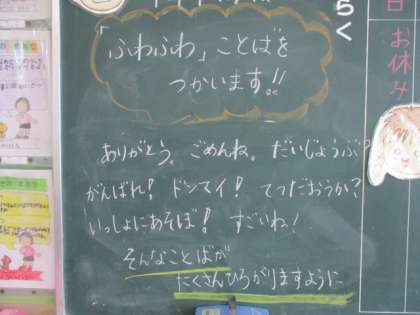 「ふわふわ」ことばを
つかいます!!
ありがとう。ごめんね。だいじょうぶ?
がんばれ! ドンマイ! てつだおうか?
いっしょにあそぼ! すごいね!
そんなことばが
たくさんひろがりますように
らく
お休み